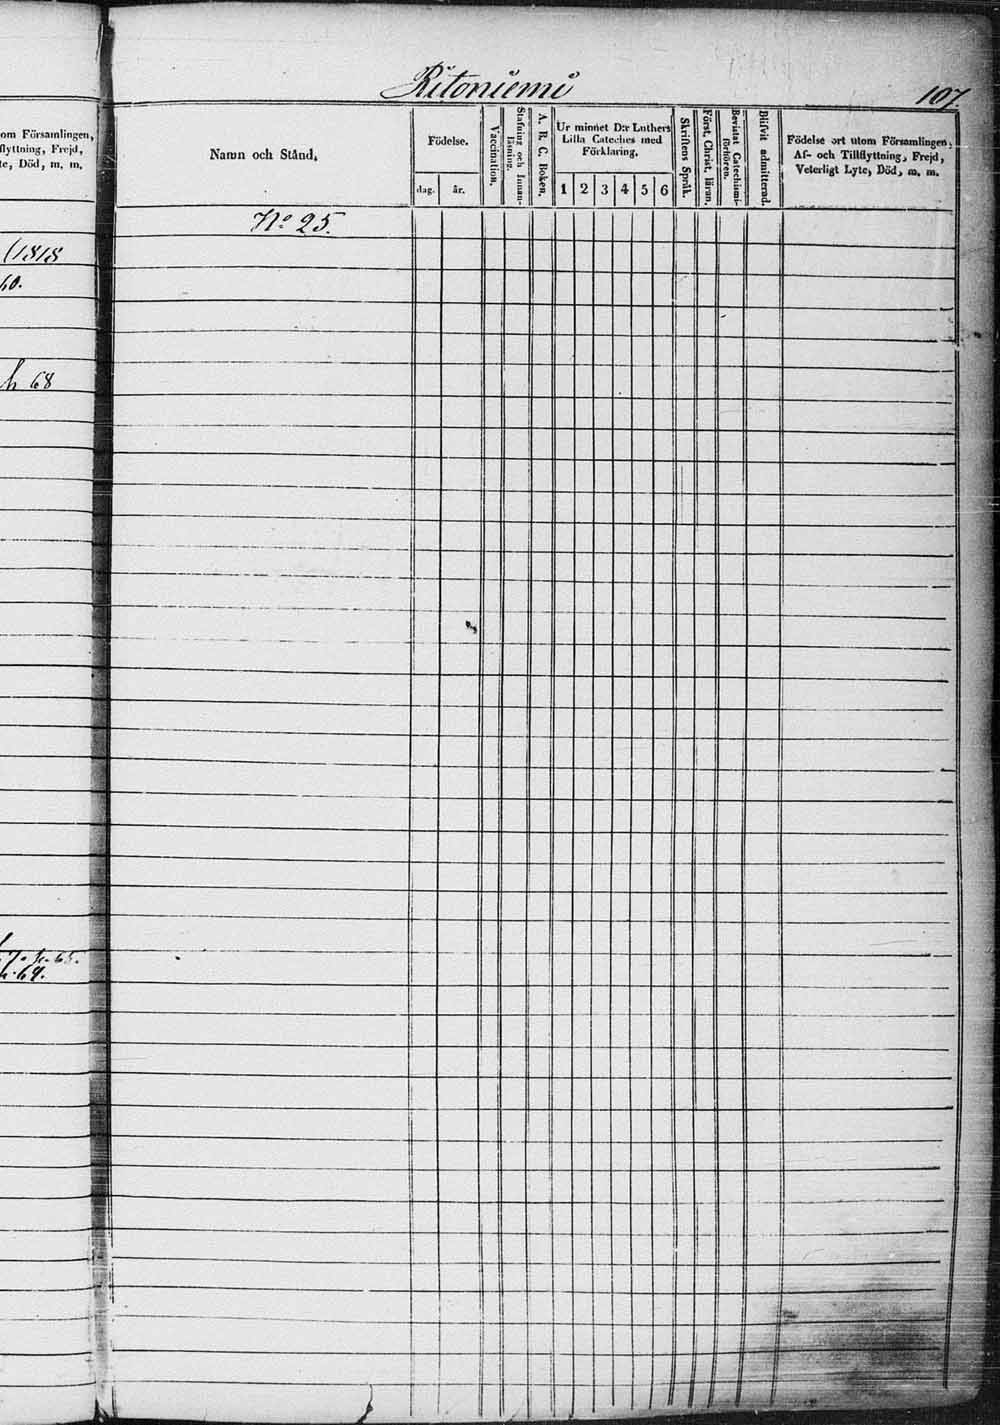 Ritoniemi
107.
om Församlingen,
flyttning, Frejd,
te, Död, m. m.
(1818
60.
h 68
h. 69.
Namn och Stånd,
Födelse.
dag.
år.
Vaccination.
Stafning och Innan-
läsning.
A. B. C. Boken.
Ur minnet D:r Luthers
Lilla Cateches med
Förklaring.
1 2 3 4 5 6
Skriftens Språk.
Först. Christ. läran.
Bevistat Catechismi-
förhören.
Blifvit admitterad.
Födelse ort utom Församlingen,
Af- och Tillflyttning, Frejd,
Veterligt Lyte, Död, m. m.
No 25.